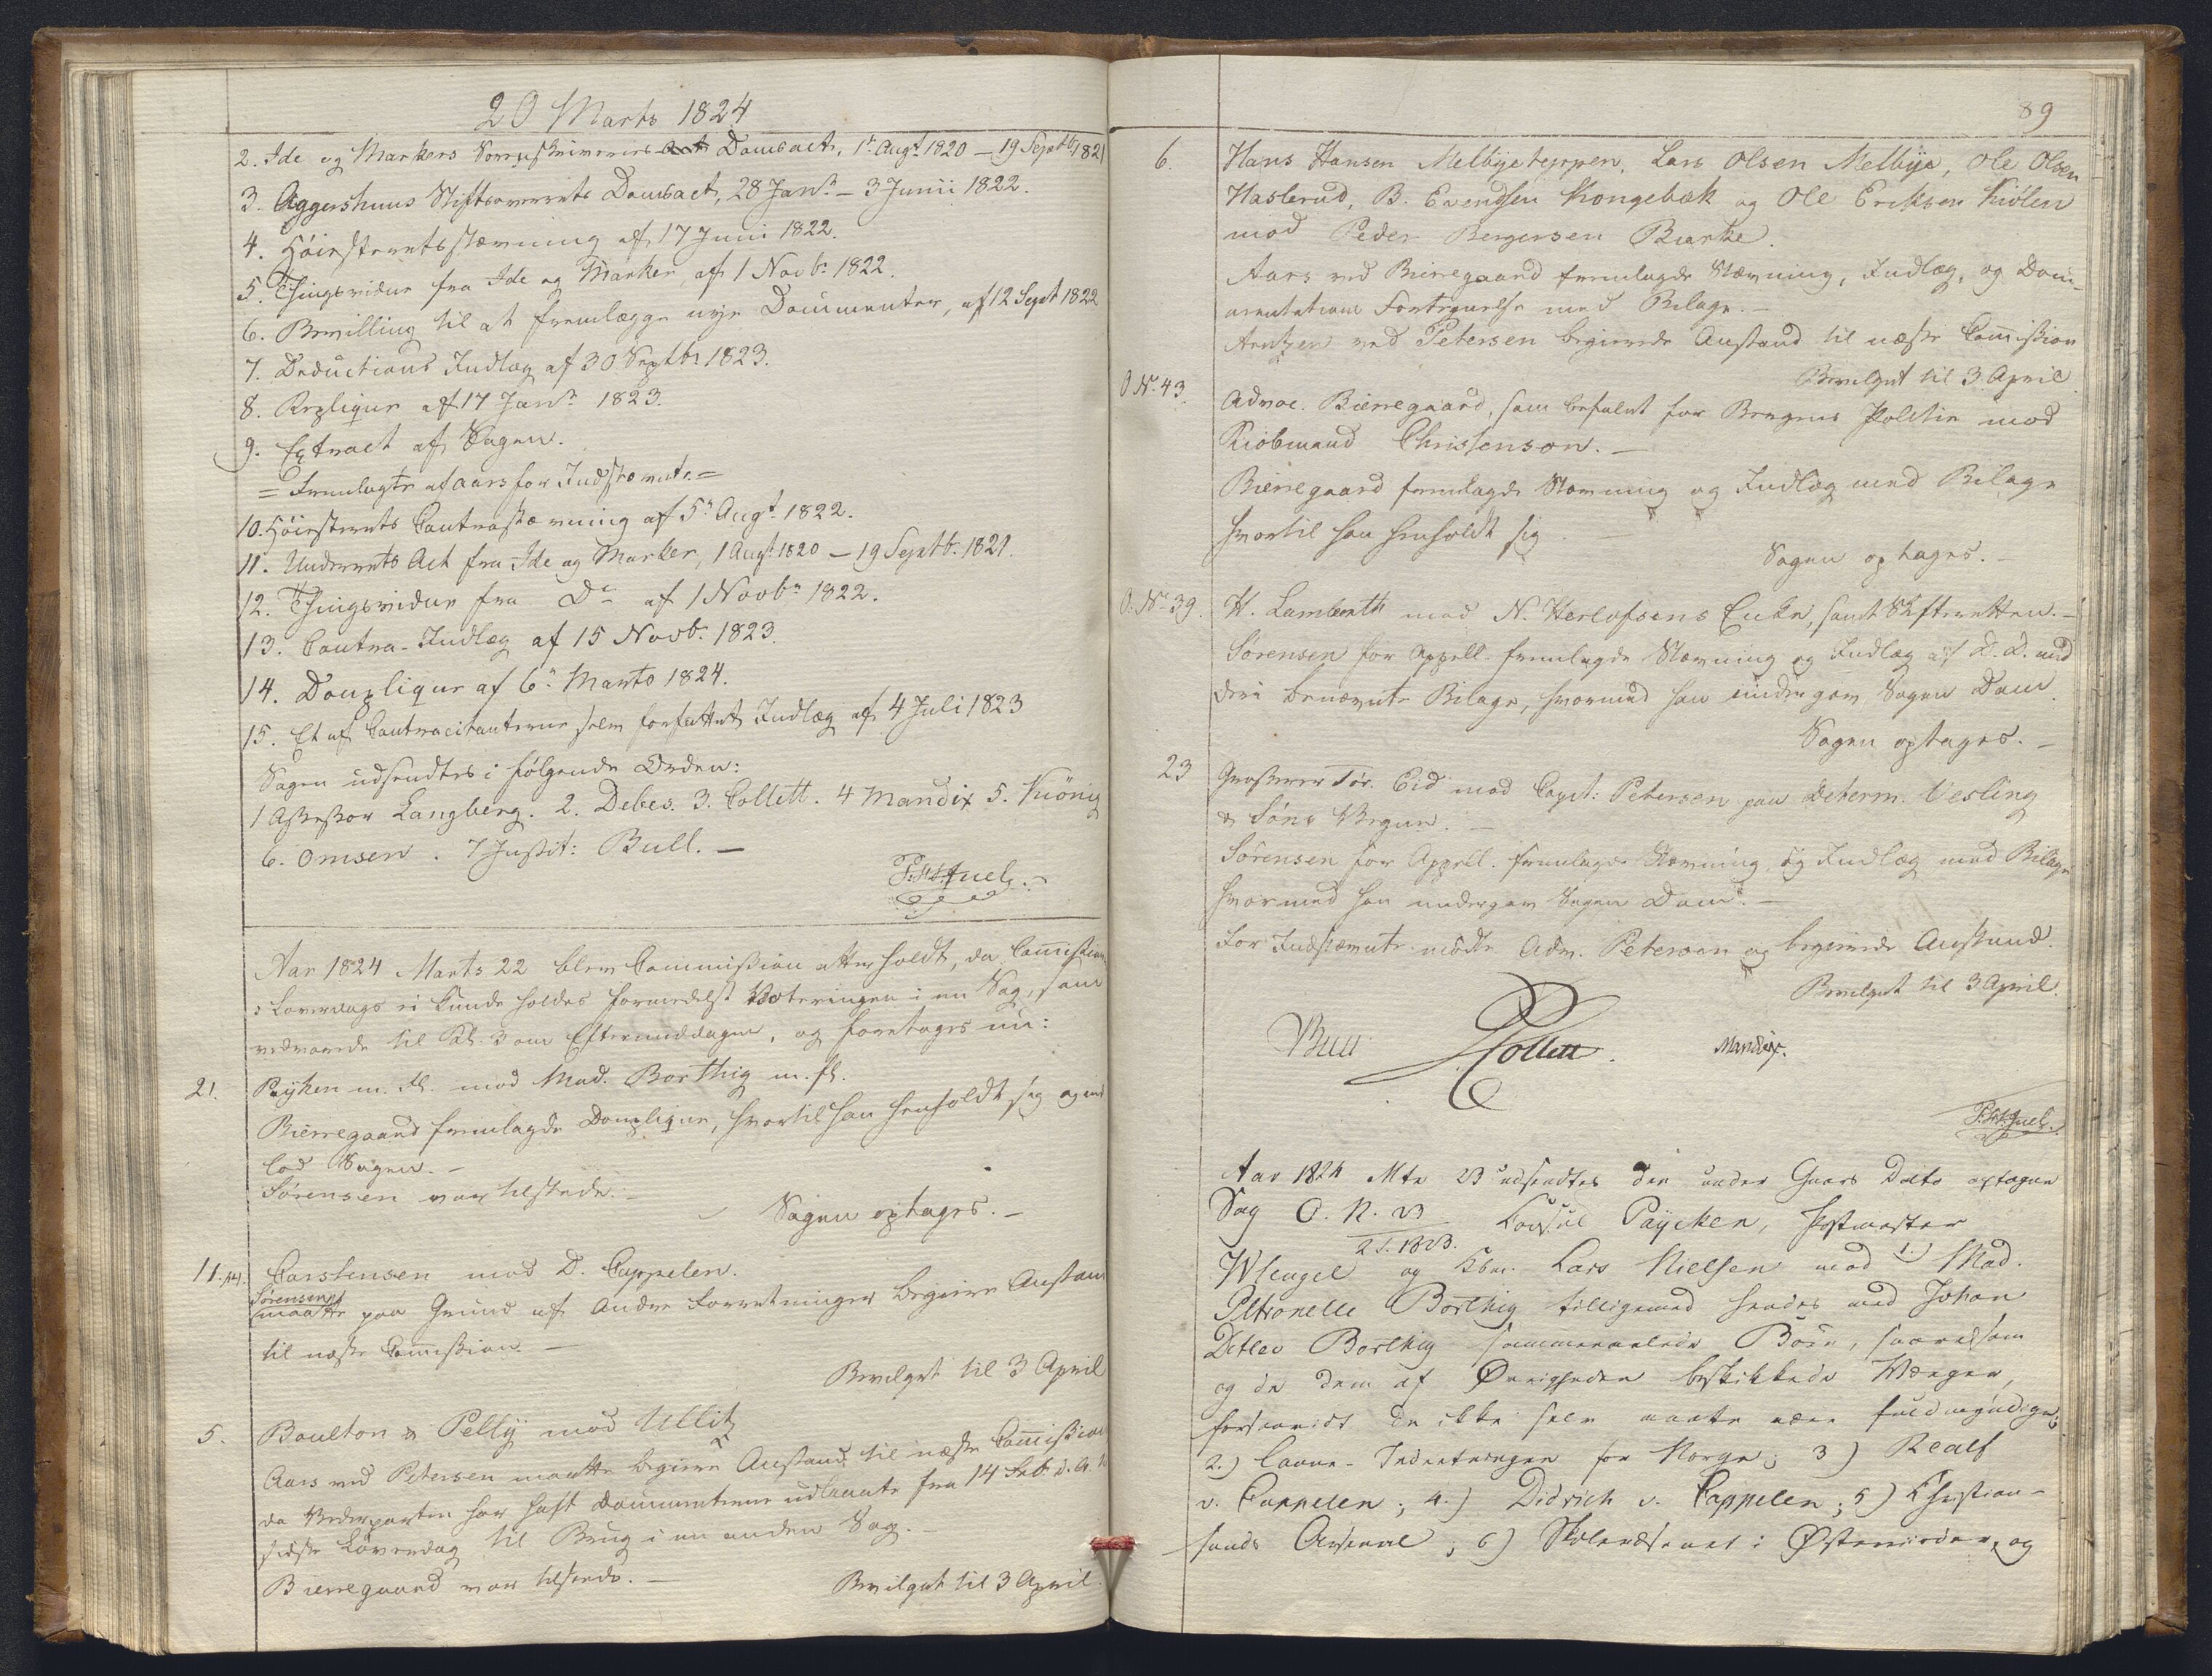 20 Marts 1824
2. Ide og Markers Sorenskriveries Domsact, 1t Augt 1820 – 19 Septb 1821
3. Aggershuus Stiftsoverrets Domsact, 28 Janr – 3 Junii 1822.
4. Höiesteretsstævning af 17 Junii 1822.
5. Thingsvidne fra Ide og Marker, af 1 Novbr 1822.
6. Bevilling til at fremlægge nye Documenter, af 12 Sept 1822
7. Deductions Indlæg af 30 Septbr 1823.
8. Replique af 17 Janr 1823.
9. Extract af Sagen.
= Fremlagte af Aars for Indstevnte. =
10. Höiesterets Contrastævning af 5t Augt 1822.
11. Underrets Act fra Ide og Marker, 1 Augt 1820 – 19 Septbr. 1821.
12. Thingsvidne fra Do af 1 Novbr 1822.
13. Contra-Indlæg af 15 Novbr. 1823.
14. Douplique af 6te Marts 1824.
15. Et af Contracitanterne selv forfattet Indlæg af 4 Juli 1823
Sagen udsendtes i følgende Orden:
1 Assessor Langberg. 2. Debes. 3. Collett. 4 Mandix 5. Kiönig
6. Omsen. 7 Justit: Bull. –
Juel.
Aar 1824 Marts 22 blev Commission atter holdt, da Commission
s Løverdags ei kunde holdes formedelst Voteringen i en Sag, som
vedvarede til Kl. 3 om Eftermiddagen, og foretages nu:
21. Payken m. fl. mod Mad. Borthig m. fl.
Bierregaard fremlagde Douplique, hvortil han henholdt sig og ind
lod Sagen. –
Sörensen var tilstede. –
Sagen optages. –
11. Carstensen mod D. Cappelen.
Sörensen
maatte paa Grund af andre Forretninger begiere Anstand
til næste Commission. –
Bevilget til 3 April
5. Boulton & Pelly mod Ullitz
Aars ved Petersen maatte begiere Anstand til næste Commission
da Vederparten har havt Documenterne udlaante fra 14 Feb. d. A. til
sidste Löverdag til Brug i en anden Sag. –
Bierregaard var tilstede. –
Bevilget til 3 April.
89
6. Hans Hansen Melbyeteppen, Lars Olsen Melbye, Ole Olsen
Haslerud, B. Evendsen Kongebæk og Ole Eriksen Kiölen
mod Peder Bergersen Buerke.
Aars ved Bierregaard fremlagde Stævning, Indlæg, og Docu-
mentations Fortegnelse med Bilage. –
Arntzen ved Petersen begierede Anstand til næste Commission
Bevilget til 3 April
O. No. 43. Advoc. Bierregaard, som befalet for Bragnes Politie mod
Kiöbmand Christenson. –
Bierregaard fremlagde Stævning og Indlæg med Bilage
hvortil han henholdt sig. –
Sagen optages. –
O. No. 39. H. Lamberth mod N. Herlofsens Enke, samt Skifteretten. –
Sörensen for Appell. fremlagde Stævning og Indlæg af D. D. med
deri benævnte Bilage, hvormed han undergav Sagen Dom.
Sagen optages. –
23 Grosserer Tør. Eid mod Capt: Petersen paa Determ. Vesling
& Söns Vegne. –
Sörensen for Appell. fremlagde Stævning, og Indlæg med Bilage
hvormed han undergav Sagen Dom. –
For Indstævnte mödte Adv. Petersen og begierede Anstand.
Bevilget til 3 April.
Bull Collett. Mandix.
Juel.
Aar 1824 Mts 23 udsendtes den under Gaars Dato optagne
Sag O. N. 23 Consul Paycken, Postmester
21. 1823.
Wleugel og Kbm. Lars Nielsen mod 1.) Mad.
Petronelle Borthig tilligemed hendes med Johan
Detlev Borthig sammenavlede Börn, saavelsom
og de dem af Øvrigheden beskikkede Værger,
forsaavidt de ikke selv maate være fuldmyndige;
2.) Laane-Indretningen for Norge; 3) Realf
v. Cappelen; 4.) Didrich v. Cappelen; 5) Christian-
sands Arsenal, 6) Skolevæsenet i Østerriisöer, og